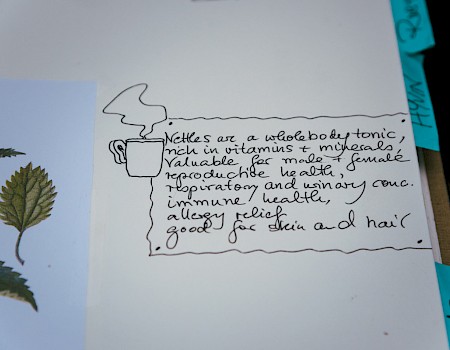 Nettles are a wholebody tonic,
rich in vitamins + minerals,
Valuable for male + female
reproductive health,
respiratory and urinary conc.
immune health,
allergy relief
good for skin and hair